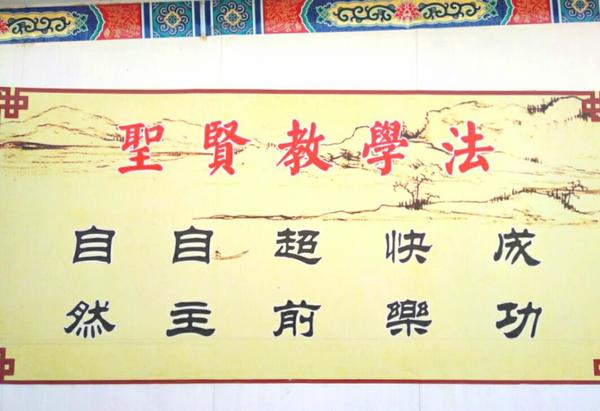 聖賢教學法
自然
自主
超前
快樂
成功